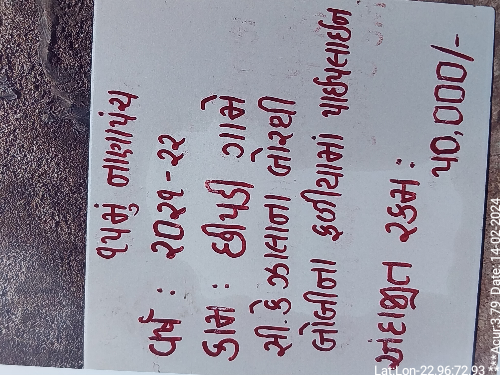 ૧૫મું નાણાપંચ
વર્ષ : ૨૦૨૧-૨૨
કામ : છીપડી ગામે
સી.કે ઝાલાના બોરથી
બોબીના ફળીયામાં પાઈપલાઈન
અંદાજીત રકમ :
૫૦,૦૦૦/-
Lat:Lon-22.96:72.93
***Accu:3.79 Date:14-02-2024